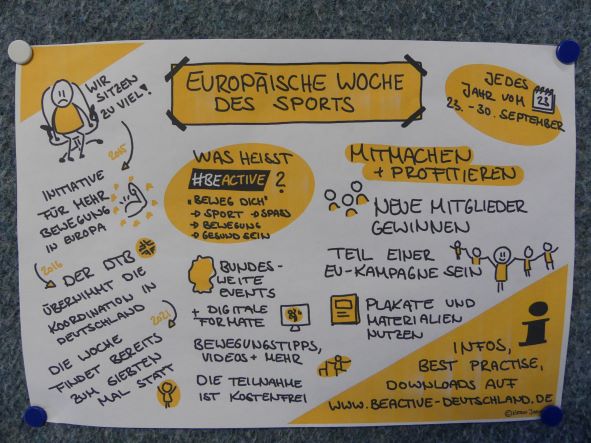 EUROPÄISCHE WOCHE
DES SPORTS
JEDES
JAHR VOM
23
23.-30. SEPTEMBER
WIR
SITZEN
ZU VIEL!
2015
INITIATIVE
FÜR MEHR
BEWEGUNG
IN EUROPA
2016
DER DTB
ÜBERNIMMT DIE
KOORDINATION IN
DEUTSCHLAND
2021
DIE WOCHE
FINDET BEREITS
ZUM SIEBTEN
MAL STATT
WAS HEISST
#BEACTIVE ?
"BEWEG DICH"
→ SPORT → SPASS
→ BEWEGUNG
→ GESUND SEIN
BUNDES-
WEITE
EVENTS
+ DIGITALE
FORMATE
BEWEGUNGSTIPPS,
VIDEOS + MEHR
DIE TEILNAHME
IST KOSTENFREI
MITMACHEN
+ PROFITIEREN
NEUE MITGLIEDER
GEWINNEN
TEIL EINER
EU-KAMPAGNE SEIN
PLAKATE UND
MATERIALIEN
NUTZEN
i
INFOS,
BEST PRACTISE,
DOWNLOADS AUF
WWW.BEACTIVE-DEUTSCHLAND.DE